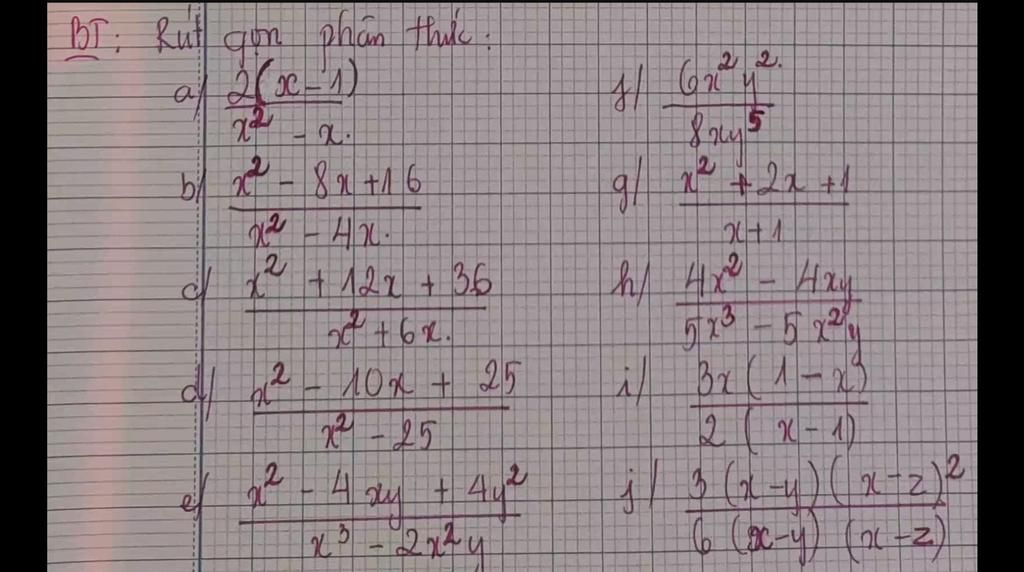 BT: Rút gọn phân thức:
a/ 2(x-1) / x² - x.
b/ x² - 8x + 16 / x² - 4x.
c/ x² + 12x + 36 / x² + 6x.
d/ x² - 10x + 25 / x² - 25
e/ x² - 4xy + 4y² / x³ - 2x²y
f/ 6x²y². / 8xy⁵
g/ x² + 2x + 1 / x+1
h/ 4x² - 4xy / 5x³ - 5x²y
i/ 3x(1-x) / 2(x-1)
j/ 3(x-y)(x-z)² / 6(x-y)(x-z)